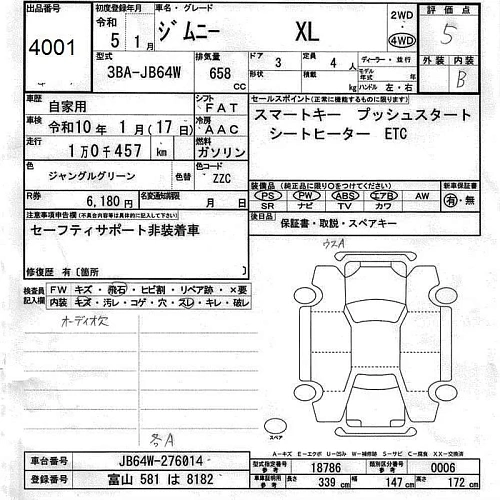 出品番号 4001
初度登録年月 令和 5年 1月
車名・グレード ジムニー XL
2WD 4WD
評価点 5
型式 3BA-JB64W
排気量 658 cc
ドア 3 形状
定員 4人 積載 kg
ディーラー・並行
モデル年式 年
ハンドル 左・右
外装 内装 B
車歴 自家用
シフト FAT
セールスポイント(正常に機能するものに限ります)
車検 令和10年 1月(17日)
冷房 AAC
スマートキー プッシュスタート
シートヒーター ETC
走行 1万0千457 km
燃料 ガソリン
色 ジャングルグリーン 色替
色コード ZZC
装備品(純正品に限り○をつけてください) 新車保証書
PS PW ABS エアB AW 有・無
SR ナビ TV カワ
R券 6,180円 名変期限 月 日
後日品 保証書・取説・スペアキー
注意事項申告欄(不具合内容等は具体的に記入して下さい)
セーフティサポート非装着車
修復歴 有〔箇所 〕
ウスA
検査員記入欄 FW キズ・飛石・ヒビ割・リペア跡・×要
内装 キズ・汚レ・コゲ・穴・スレ・キレ・破レ
オーディオ欠
各A
スペア
A-キズ E-エクボ U-凹み W-補修跡 S-サビ C-腐食 XX-交換済
車台番号 JB64W-276014
型式指定番号 18786 類別区分番号 0006
登録番号 富山 581 は 8182
車証明用 長さ 339 cm 幅 147 cm 高さ 172 cm